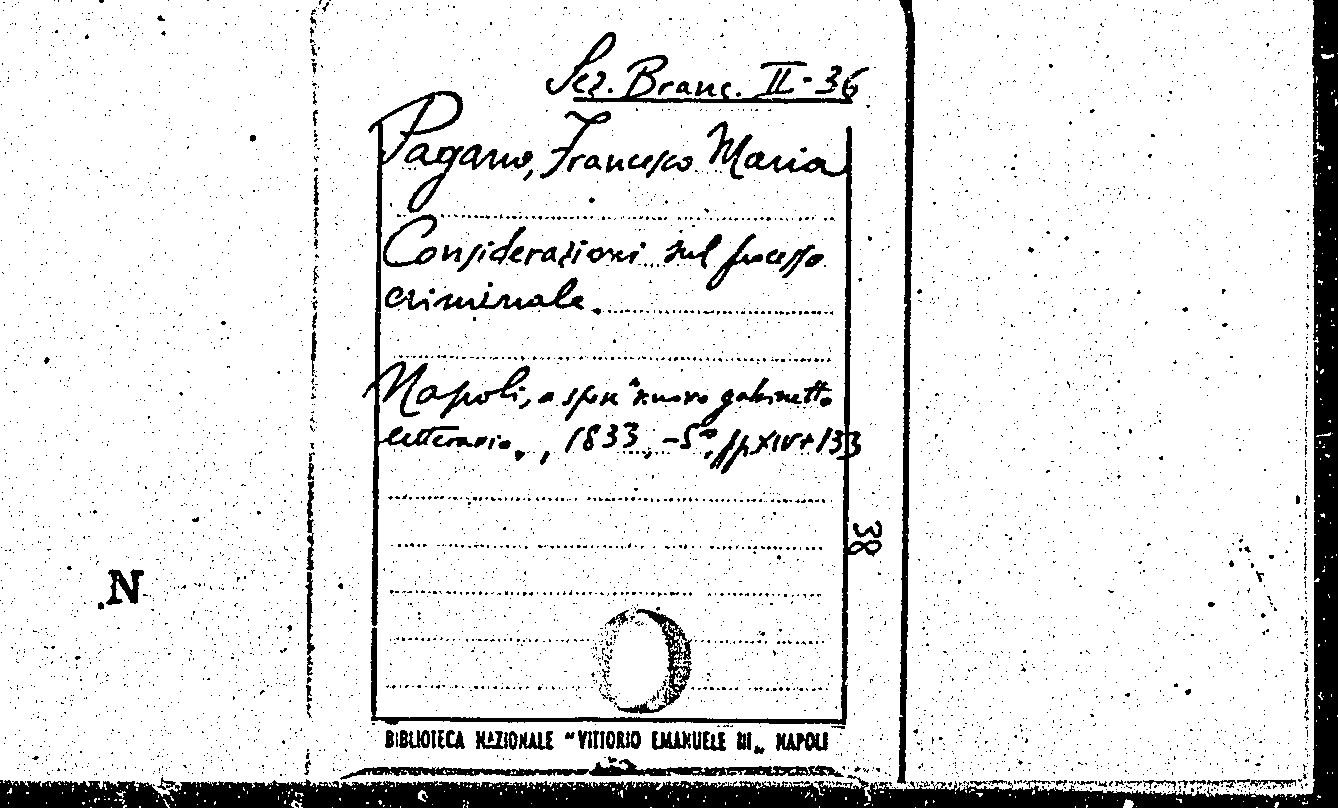 Sez. Branc. II-36
Pagano, Francesco Maria
Considerazioni sul processo
criminale.
Napoli, a spese "nuovo gabinetto
letterario„, 1833, -8°, pp XIV+133
38
N
BIBLIOTECA NAZIONALE "VITTORIO EMANUELE III„ NAPOLI